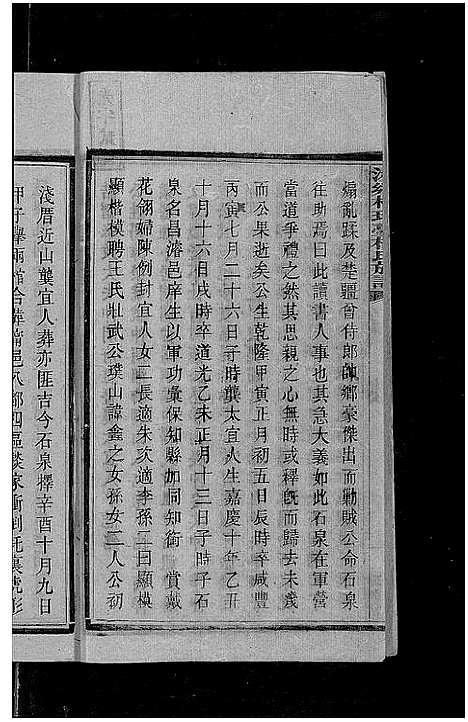 煽亂蹂及楚疆曾侍郎陳鄉豪傑出而勦賊公命石泉
往助焉曰此讀書人事也其急大義如此石泉在軍營
當道爭禮之然其思親之心無時或釋旣而歸去未幾
而公果逝矣公生乾隆甲寅正月初五日辰時卒咸豐
丙寅七月二十六日子時龔太宜人生嘉慶十年乙丑
十月十六日戌時卒道光乙未正月十三日子時子石
泉名昌濬邑庠生以軍功彙保知縣加同知銜　賞戴
花翎婦陳例封宜人女二長適朱次適李孫二曰顯模
顯楷模聘王氏壯武公璞山諱鑫之女孫女二人公初
淺厝近山龔宜人葬亦匪吉今石泉擇辛酉十月九日